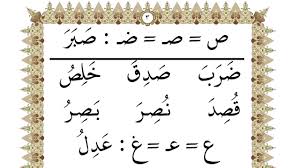 ٣
ص = صـ = ضـ : صَبَرَ
ضَرَبَ صَدِقَ خَلِصُ
قُصِدَ نُصِرَ بَصِرُ
ع = عـ = غ : عَدِلُ